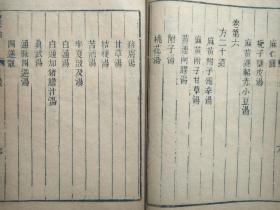 麻仁丸
梔子蘗皮湯
麻黃連軺赤小豆湯
卷第六
方二十道
麻黃附子細辛湯
麻黃附子甘草湯
黃連阿膠湯
附子湯
桃花湯
猪膚湯
甘草湯
桔梗湯
苦酒湯
半夏散及湯
白通湯
白通加猪膽汁湯
真武湯
通脉四逆湯
四逆散